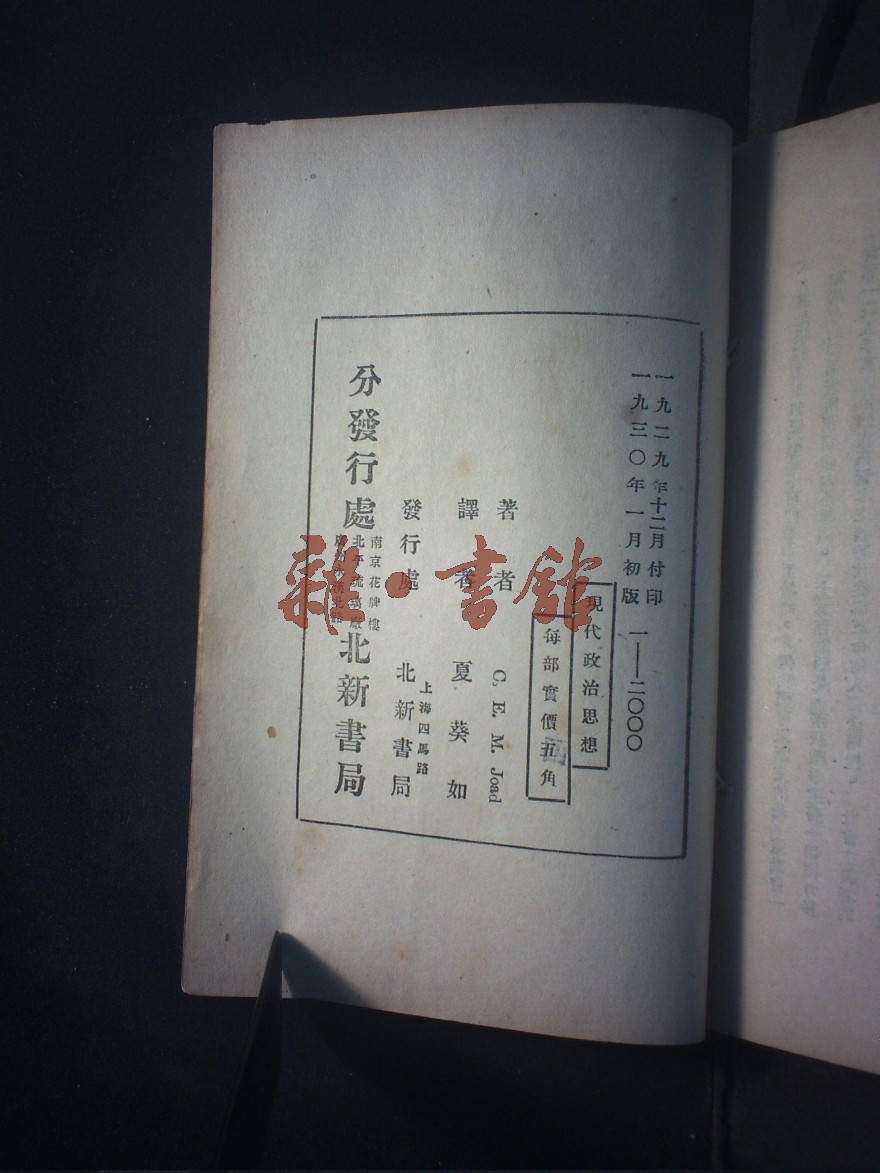 一九二九年十二月付印
一九三〇年一月初版 一——二〇〇〇
現代政治思想
每部實價五角
著者 C. E. M. Joad
譯者 夏葵如
發行處 上海四馬路 北新書局
分發行處 南京花牌樓
北平琉璃廠
北新書局
雜·書館